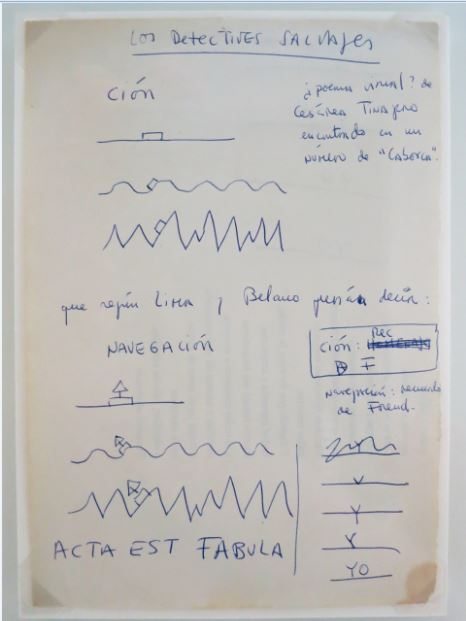 LOS DETECTIVES SALVAJES
CIÓN
¿poema visual? de
Cesárea Tinajero
encontrado en un
número de "CABORCA".
que según LIMA y Belano quería decir:
NAVEGACIÓN
Rec
ción:
F
navegación: recuerdo
de Freud.
YO
ACTA EST FABULA